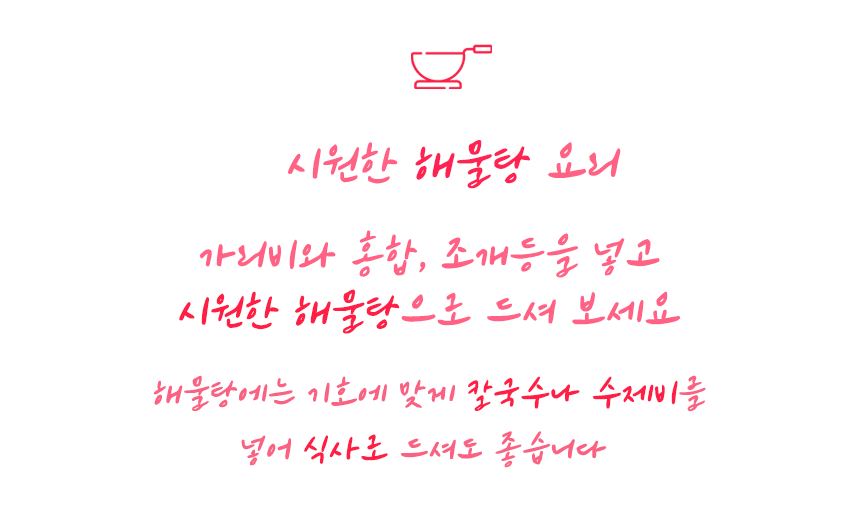 시원한 해물탕 요리
가리비와 홍합, 조개등을 넣고
시원한 해물탕으로 드셔 보세요
해물탕에는 기호에 맞게 칼국수나 수제비를
넣어 식사로 드셔도 좋습니다